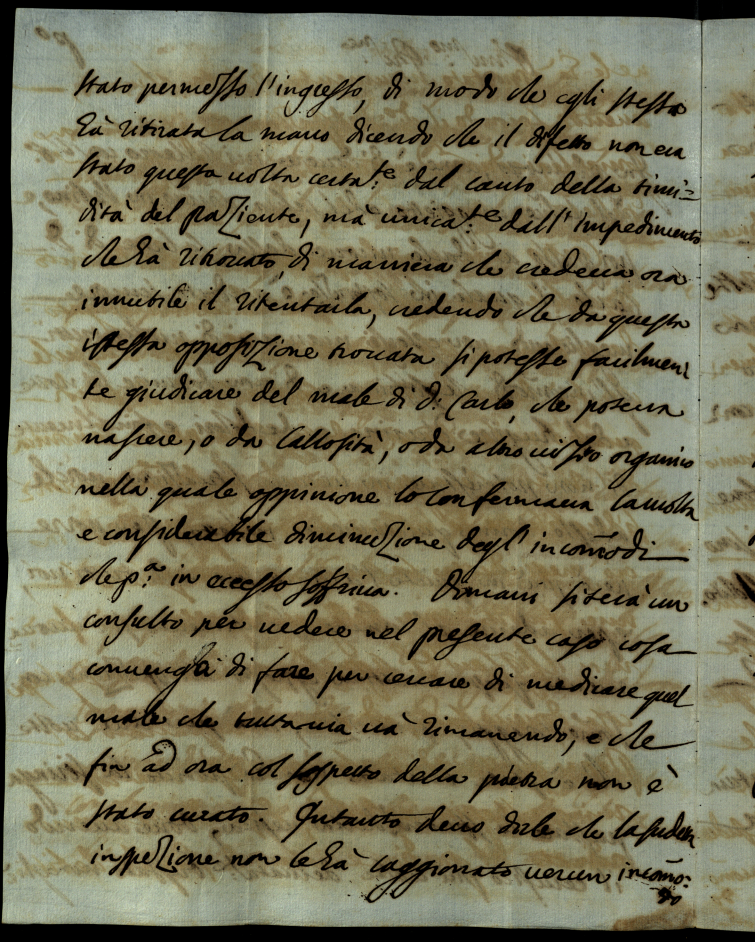 stato permesso l'ingresso, di modo che egli stesso
hà ritirata la mano dicendo che il difetto non era
stato questa uolta certa.te dal canto della timi=
dità del paziente, mà unica.te dall'impedimento
che hà ritrouato, di maniera che credeua ora
innutile il ritentarla, credendo che da questa
istessa opposizione trouata si potesse facilmen
te giudicare del male di D: Carlo, che poteua
nascere, o da Callosità, o da altro uizio organico
nella quale oppinione lo Confermaua la molta
e considerabile diminuzione degl'incom̄odi
che p.a in eccesso soffriua. Domani si terà un
consulto per uedere nel presente caso cosa
conuenga di fare per cercare di medicare quel
male che tuttauia uà rimanendo, e che
fin ad ora col sospetto della pietra non è
stato curato. Intanto deuo dirle che la sudetta
inspezione non le hà caggionato uerun incom̄o:
do